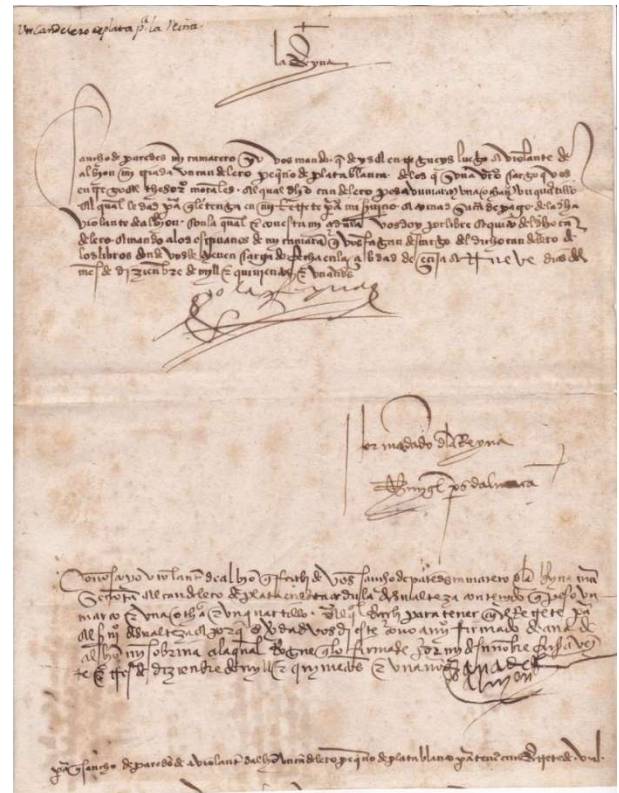 Un candelero de plata pa la Reina.
la Reyna
Sancho de paredes mi camarero yo vos mando que deys e entregueys luego a violante de
albion mi criada un candelero pequeño de plata blanca de los que son a vro cargo que vos
entrego de morales. el qual dho candelero pesa un marco y una e un quartillo
el qual le dad pa que le tenga en mi pa mi e tomad su de pago de la dha
violante de albion. con la qual e con esta mi vos doy por libre e quito del dho can
delero e mando a los de mi camara que vos fagan del dicho candelero de
los libros donde vos le tienen cargado fecha en la cibdad de ecija a nueve dias del
mes de dizienbre de mill e quinientos e un años
yo la Reyna
Por mandado de la Reyna
Conosco yo violante de albion que recebi de vos sancho de paredes camarero de la Reyna mi
Señora el candelero de plata en esta cedula de su alteza contenido que peso un
marco e una e un quartillo. el qual para tener en el Retrete pa
el de su alteza e por ques verdad vos di este firmado de ana de
albion mi sobrina a la qual Rogue que lo firmase por mi fecho a veyn
te e de dizienbre de mill e quinientos e un años
ana de
albion
pa que sancho de paredes de a violante dalbion un candelero pequeño de plata blanca pa tener en el Retrete de